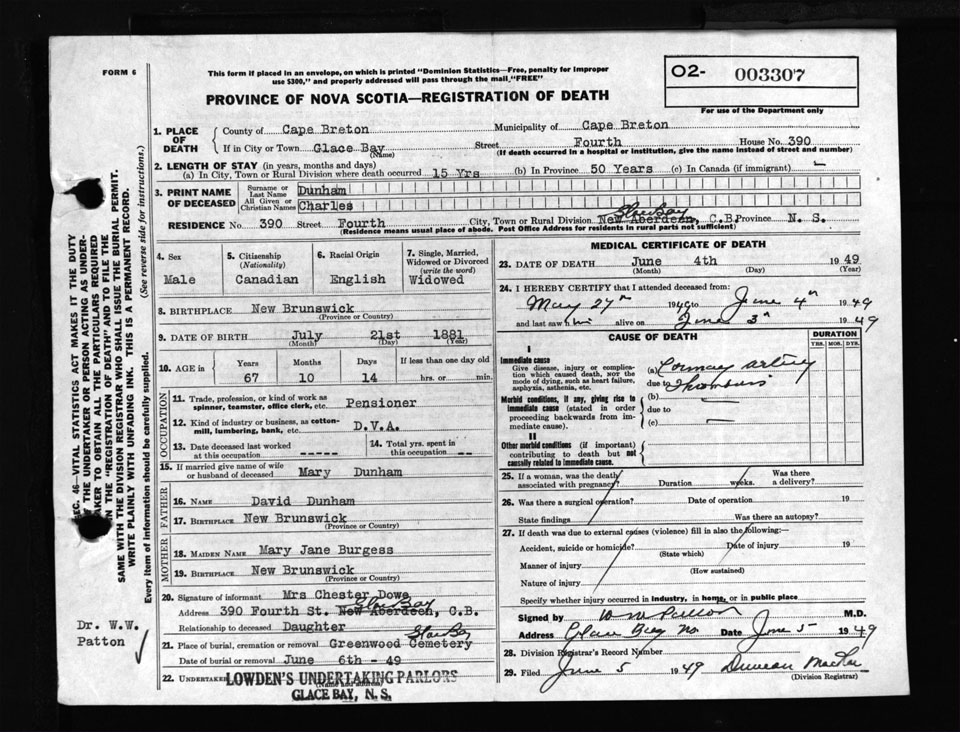 FORM 6
This form if placed in an envelope, on which is printed "Dominion Statistics—Free, penalty for improper
use $300," and properly addressed will pass through the mail "FREE"
PROVINCE OF NOVA SCOTIA—REGISTRATION OF DEATH
O2- 003307
For use of the Department only
SEC. 46 - VITAL STATISTICS ACT MAKES IT THE DUTY
OF THE UNDERTAKER OR PERSON ACTING AS UNDER-
TAKER TO OBTAIN ALL THE PARTICULARS REQUIRED
IN THE "REGISTRATION OF DEATH" AND TO FILE THE
SAME WITH THE DIVISION REGISTRAR WHO SHALL ISSUE THE BURIAL PERMIT.
WRITE PLAINLY WITH UNFADING INK. THIS IS A PERMANENT RECORD.
Every item of information should be carefully supplied. (See reverse side for instructions.)
1. PLACE OF DEATH
County of Cape Breton Municipality of Cape Breton
If in City or Town Glace Bay Street Fourth House No. 390
(Name) (If death occurred in a hospital or institution, give the name instead of street and number)
2. LENGTH OF STAY (in years, months and days)
(a) In City, Town or Rural Division where death occurred 15 Yrs (b) In Province 50 Years (c) In Canada (if immigrant) -
3. PRINT NAME OF DECEASED
Surname or Last Name Dunham
All Given or Christian Names Charles
Glace Bay
RESIDENCE No. 390 Street Fourth City, Town or Rural Division New Aberdeen, C.B. Province N. S.
(Residence means usual place of abode. Post Office Address for residents in rural parts not sufficient)
4. Sex
Male
5. Citizenship
(Nationality)
Canadian
6. Racial Origin
English
7. Single, Married,
Widowed or Divorced
(write the word)
Widowed
8. BIRTHPLACE New Brunswick
(Province or Country)
9. DATE OF BIRTH July 21st 1881
(Month) (Day) (Year)
10. AGE in
Years Months Days If less than one day old
67 10 14 hrs. or min.
OCCUPATION
11. Trade, profession or kind of work as
spinner, teamster, office clerk, etc. Pensioner
12. Kind of industry or business, as cotton-
mill, lumbering, bank, etc. D.V.A.
13. Date deceased last worked
at this occupation -----
14. Total yrs. spent in
this occupation --
15. If married give name of wife
or husband of deceased Mary Dunham
FATHER
16. NAME David Dunham
17. BIRTHPLACE New Brunswick
(Province or Country)
MOTHER
18. MAIDEN NAME Mary Jane Burgess
19. BIRTHPLACE New Brunswick
(Province or Country)
20. Signature of informant Mrs Chester Dowe
Glace Bay
Address 390 Fourth St. New Aberdeen, C.B.
Relationship to deceased Daughter
Glace Bay
21. Place of burial, cremation or removal Greenwood Cemetery
Date of burial or removal June 6th - 49
22. UNDERTAKER LOWDEN'S UNDERTAKING PARLORS
(Name and address)
GLACE BAY, N. S.
Dr. W.W.
Patton
MEDICAL CERTIFICATE OF DEATH
23. DATE OF DEATH June 4th 1949
(Month) (Day) (Year)
24. I HEREBY CERTIFY that I attended deceased from:
May 27th 1949 to June 4th 1949
and last saw him alive on June 3rd 1949
CAUSE OF DEATH
DURATION
YRS. MOS. DYS.
I
Immediate cause
Give disease, injury or complica-
tion which caused death, NOT the
mode of dying, such as heart failure,
asphyxia, asthenia, etc.
(a) Coronary artery
due to Thrombosis
Morbid conditions, if any, giving rise to
immediate cause (stated in order
proceeding backwards from im-
mediate cause).
(b)
due to
(c)
II
Other morbid conditions (if important)
contributing to death but not
causally related to immediate cause.
25. If a woman, was the death
associated with pregnancy? Duration weeks. Was there
a delivery?
26. Was there a surgical operation? Date of operation 19
State findings Was there an autopsy?
27. If death was due to external causes (violence) fill in also the following:—
Accident, suicide or homicide? Date of injury 19
(State which)
Manner of injury
(How sustained)
Nature of injury
Specify whether injury occurred in industry, in home, or in public place
Signed by W W Patton M.D.
Address Glace Bay NS Date June 5 1949
28. Division Registrar's Record Number
29. Filed June 5 1949 Duncan
(Division Registrar)